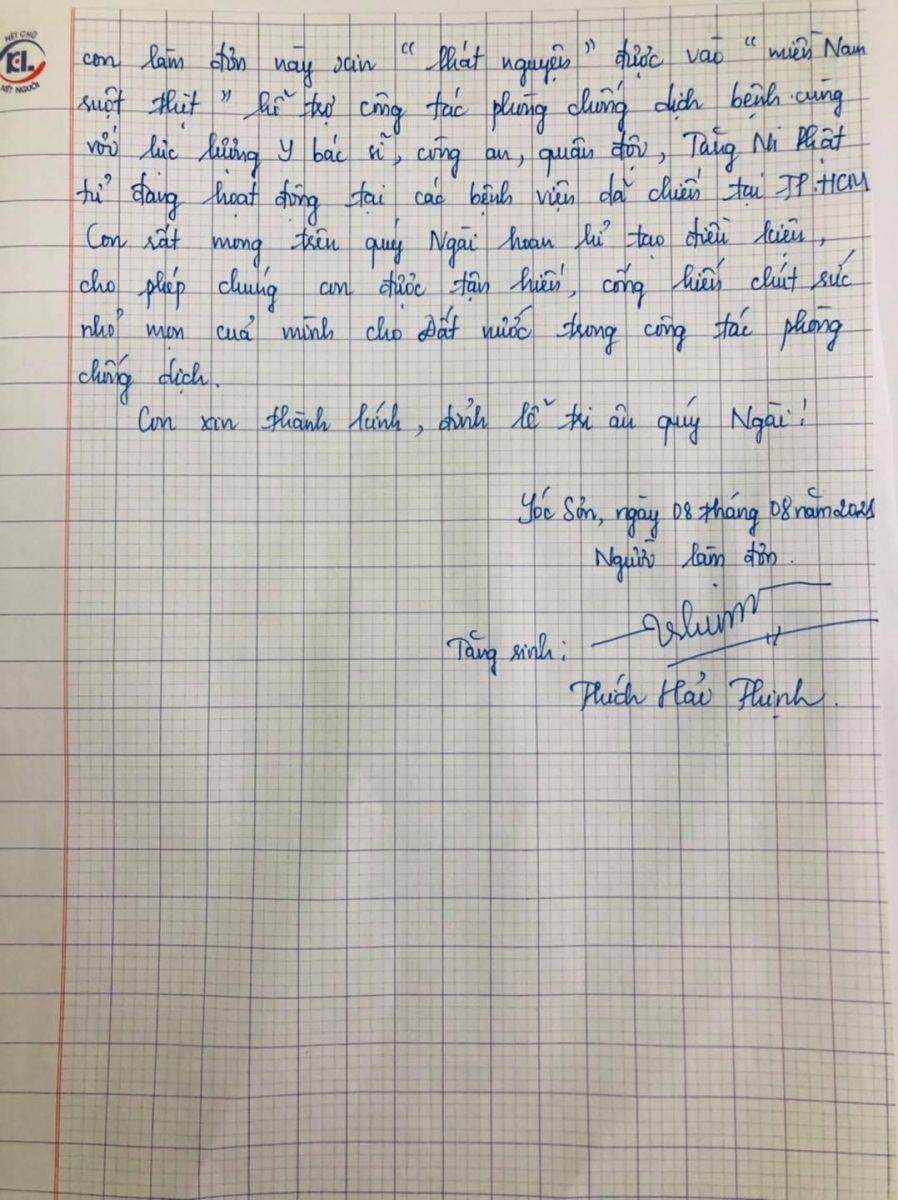 NÉT CHỮ
KL
NẾT NGƯỜI
con làm đơn này xin “ Phát nguyện ” được vào “ miền Nam
ruột thịt ” hỗ trợ công tác phòng chống dịch bệnh cùng
với lực lượng Y bác sĩ, công an, quân đội, Tăng Ni Phật
tử đang hoạt động tại các bệnh viện dã chiến tại TP.HCM
Con rất mong trên quý Ngài hoan hỉ tạo điều kiện,
cho phép chúng con được tận hiến, cống hiến chút sức
nhỏ mọn của mình cho Đất nước trong công tác phòng
chống dịch.
Con xin thành kính, đỉnh lễ tri ân quý Ngài!
Sóc Sơn, ngày 08 tháng 08 năm 2021
Người làm đơn.
Tăng sinh:
Thích Hải Thịnh.